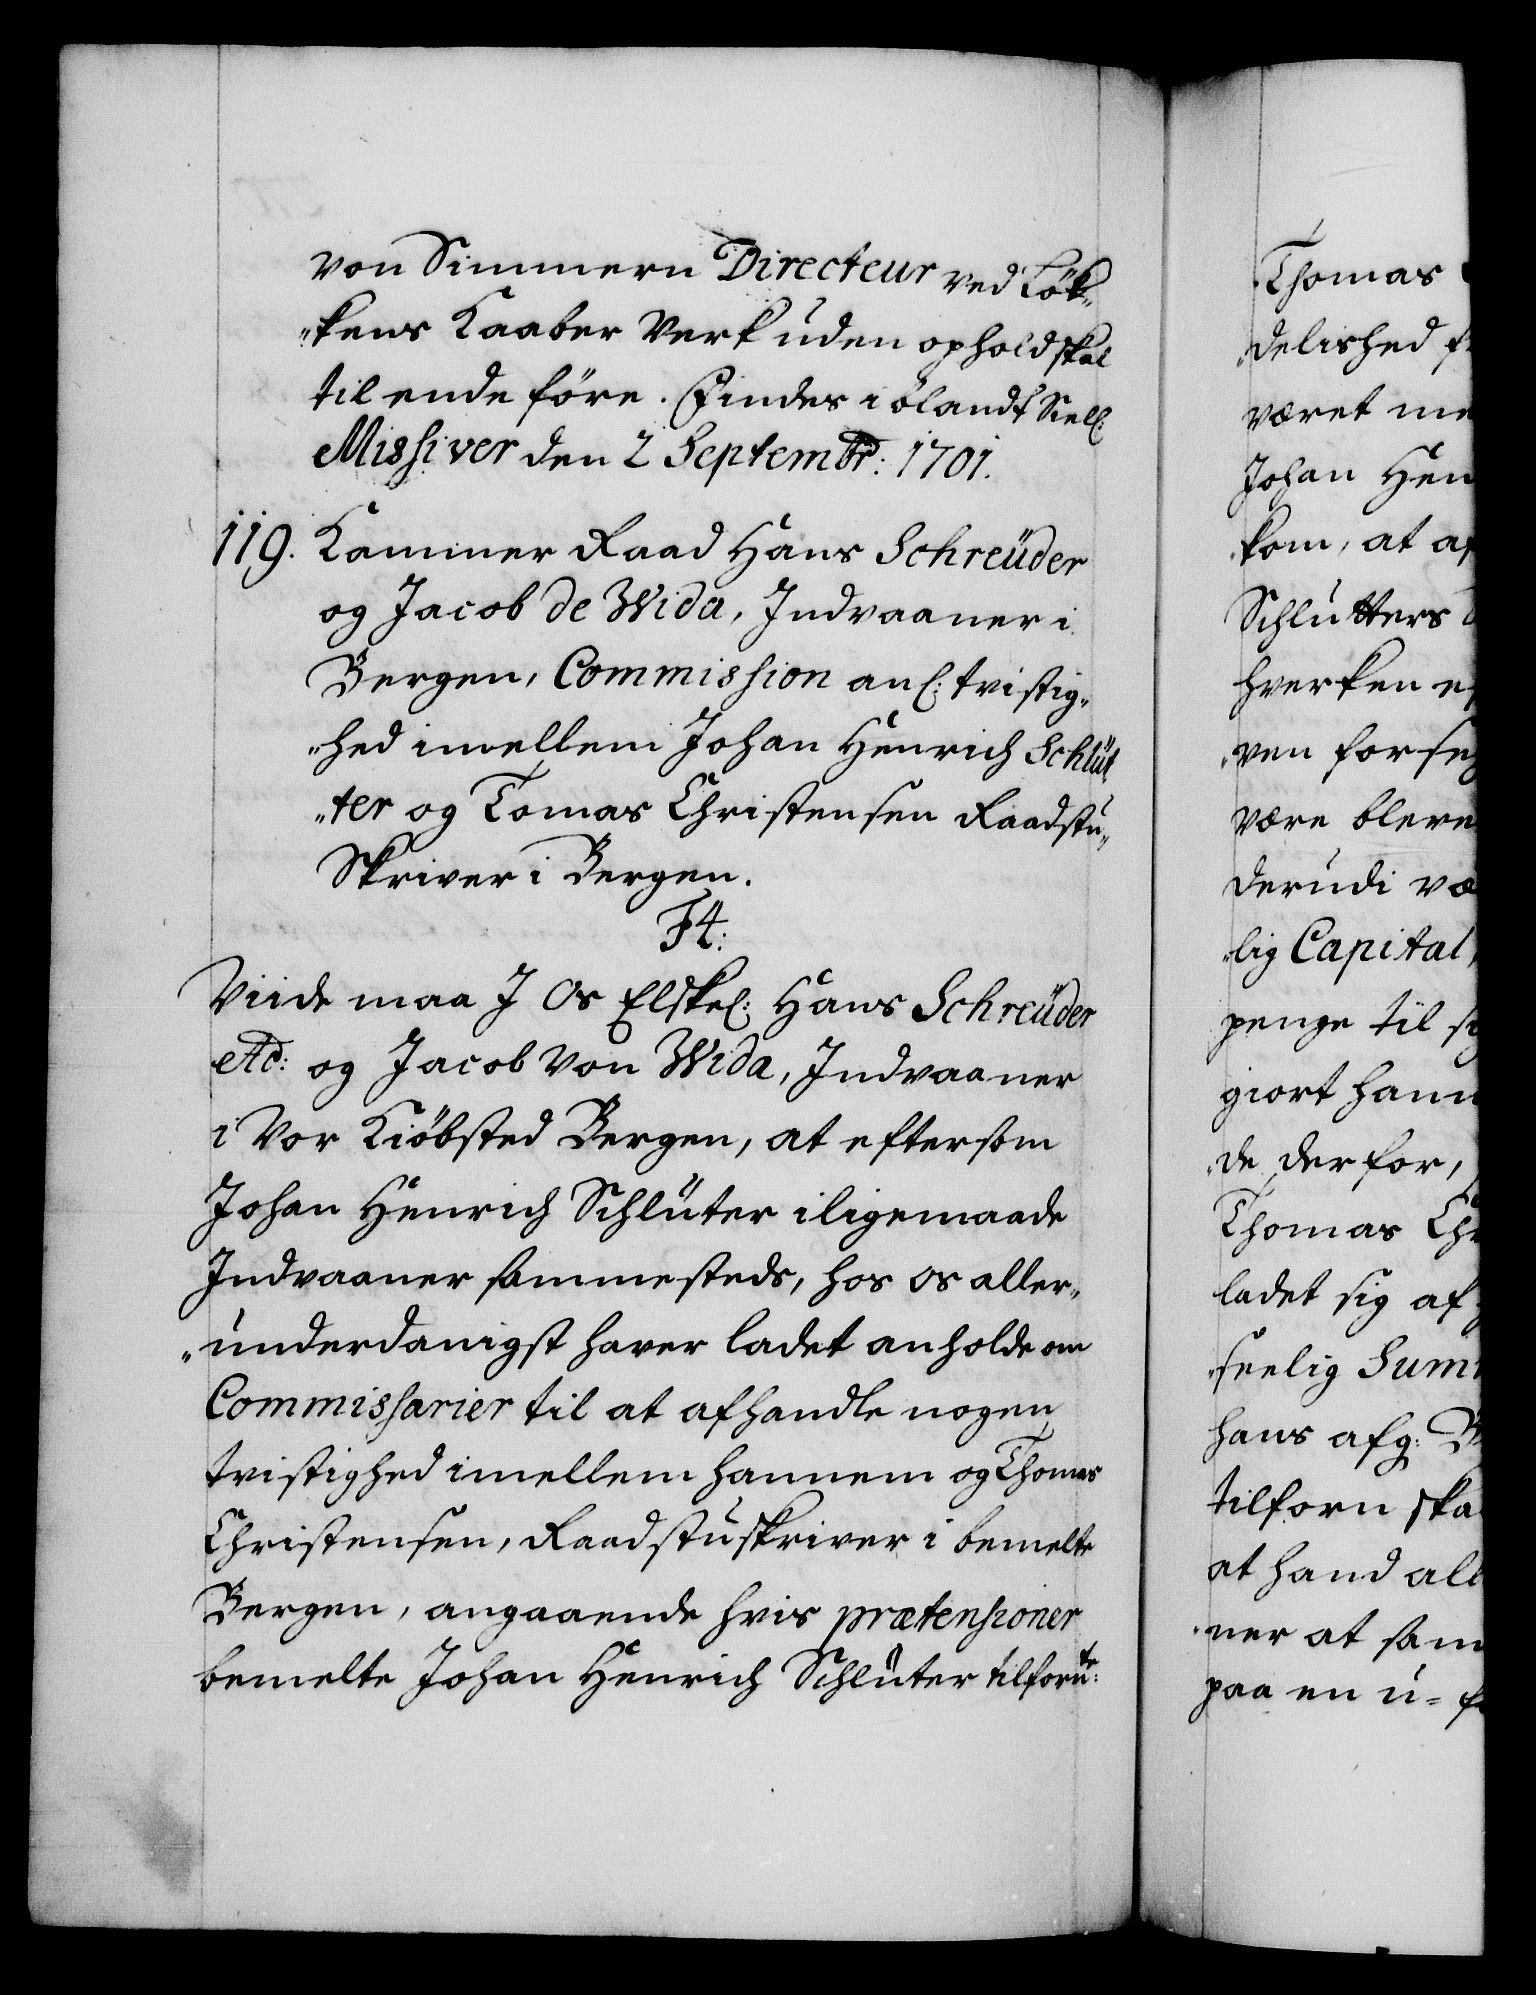 von Simmern Directeur ved Løk„
„kens Kaaber Verk uden ophold skal
til ende före. Findes i ölandsk Siell:
Missiver den 2 Septembr: 1701.
119. Kammer Raad Hans Schreüder
og Jacob de Wida, Indvaaner i
Bergen, Commission anl: tvistig„
„hed imellem Johan Henrich Schlüt„
„ter og Tomas Christensen Raadstu„
Skriver i Bergen.
F4:
Viide maa I Os Elskel: Hans Schreüder
etc: og Jacob von Wida, Indvaaner
i Vor Kiöbsted Bergen, at eftersom
Johan Henrich Schlüter iligemaade
Indvaaner sammesteds, hos os aller„
„underdanigst haver ladet anholde om
Commissarier til at afhandle nogen
tvistighed imellem hannem og Thomas
Christensen, Raadstuskriver i bemelte
Bergen, angaaende hvis prætensioner
bemelte Johan Henrich Schlüter tilforn:te
Thomas
„delished
været me
Johan Hen
kom, at af
Schlutters
hverken
„ven forseg
være bleve
derudi væ
„lig Capital,
penge til
giort hann
„de derfor,
Thomas Chr
ladet sig af
„seelig Sum
hans afg: B
tilforn ska
at hand all
„ner at sam
paa en u-